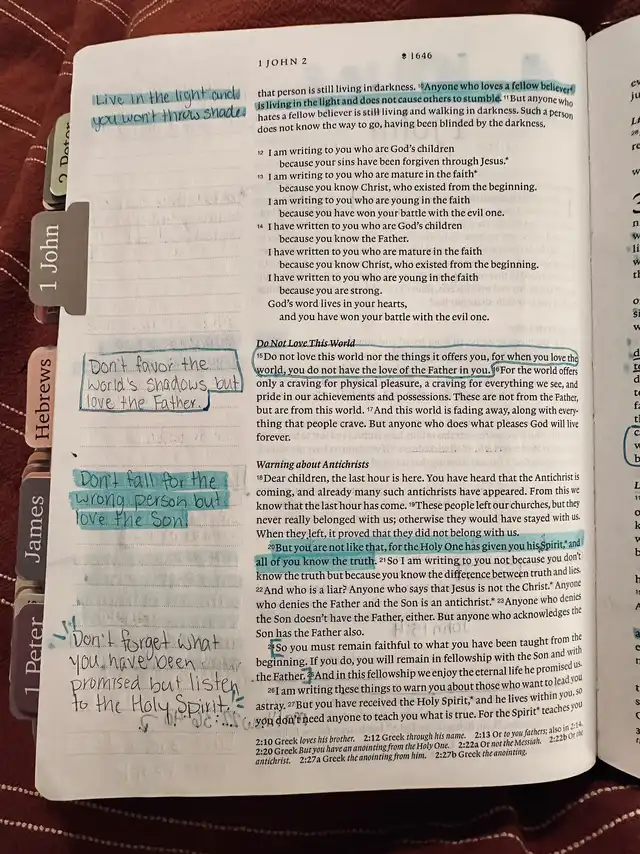 1 JOHN 2
1646
that person is still living in darkness. 10 Anyone who loves a fellow believer*
is living in the light and does not cause others to stumble. 11 But anyone who
hates a fellow believer is still living and walking in darkness. Such a person
does not know the way to go, having been blinded by the darkness.
12 I am writing to you who are God's children
because your sins have been forgiven through Jesus.*
13 I am writing to you who are mature in the faith*
because you know Christ, who existed from the beginning.
I am writing to you who are young in the faith
because you have won your battle with the evil one.
14 I have written to you who are God's children
because you know the Father.
I have written to you who are mature in the faith
because you know Christ, who existed from the beginning.
I have written to you who are young in the faith
because you are strong.
God's word lives in your hearts,
and you have won your battle with the evil one.
Do Not Love This World
15 Do not love this world nor the things it offers you, for when you love the
world, you do not have the love of the Father in you. 16 For the world offers
only a craving for physical pleasure, a craving for everything we see, and
pride in our achievements and possessions. These are not from the Father,
but are from this world. 17 And this world is fading away, along with every-
thing that people crave. But anyone who does what pleases God will live
forever.
Warning about Antichrists
18 Dear children, the last hour is here. You have heard that the Antichrist is
coming, and already many such antichrists have appeared. From this we
know that the last hour has come. 19 These people left our churches, but they
never really belonged with us; otherwise they would have stayed with us.
When they left, it proved that they did not belong with us.
20 But you are not like that, for the Holy One has given you his Spirit,* and
all of you know the truth. 21 So I am writing to you not because you don't
know the truth but because you know the difference between truth and lies.
22 And who is a liar? Anyone who says that Jesus is not the Christ.* Anyone
who denies the Father and the Son is an antichrist.* 23 Anyone who denies
the Son doesn't have the Father, either. But anyone who acknowledges the
Son has the Father also.
24 So you must remain faithful to what you have been taught from the
beginning. If you do, you will remain in fellowship with the Son and with
the Father. 25 And in this fellowship we enjoy the eternal life he promised us.
26 I am writing these things to warn you about those who want to lead you
astray. 27 But you have received the Holy Spirit,* and he lives within you, so
you don't need anyone to teach you what is true. For the Spirit* teaches you
2:10 Greek loves his brother. 2:12 Greek through his name. 2:13 Or to you fathers; also in 2:14.
2:20 Greek But you have an anointing from the Holy One. 2:22a Or not the Messiah. 2:22b Or the
antichrist. 2:27a Greek the anointing from him. 2:27b Greek the anointing.
Live in the light and
you won't throw shade.
Don't favor the
world's shadows, but
love the Father.
Don't fall for the
wrong person but
love the Son.
Don't forget what
you have been
promised but listen
to the Holy Spirit.
2 Peter
1 John
Hebrews
James
1 Peter